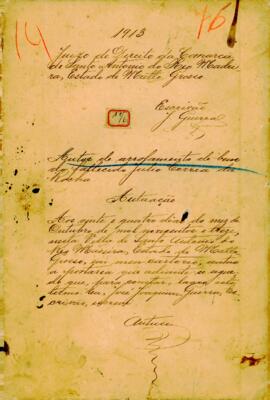 14
76
1913
Juizo de Direito da Comarca
de Santo Antonio do Rio Madei
ra, Estado de Matto Grosso
Escrivão
J. Guerra
Autos de arrolamento de bens
do fallecido Julio Correa da
Rocha
Autuação
Aos vinte e quatro dias do mez de
Outubro de mil novecentos e treze,
nesta Villa de Santo Antonio do
Rio Madeira, Estado de Matto
Grosso, em meu cartorio, autuo
a portaria que adiante se segue,
do que, para constar, lavro este
termo. Eu, José Joaquim Guerra, Es
crivão, escrevi